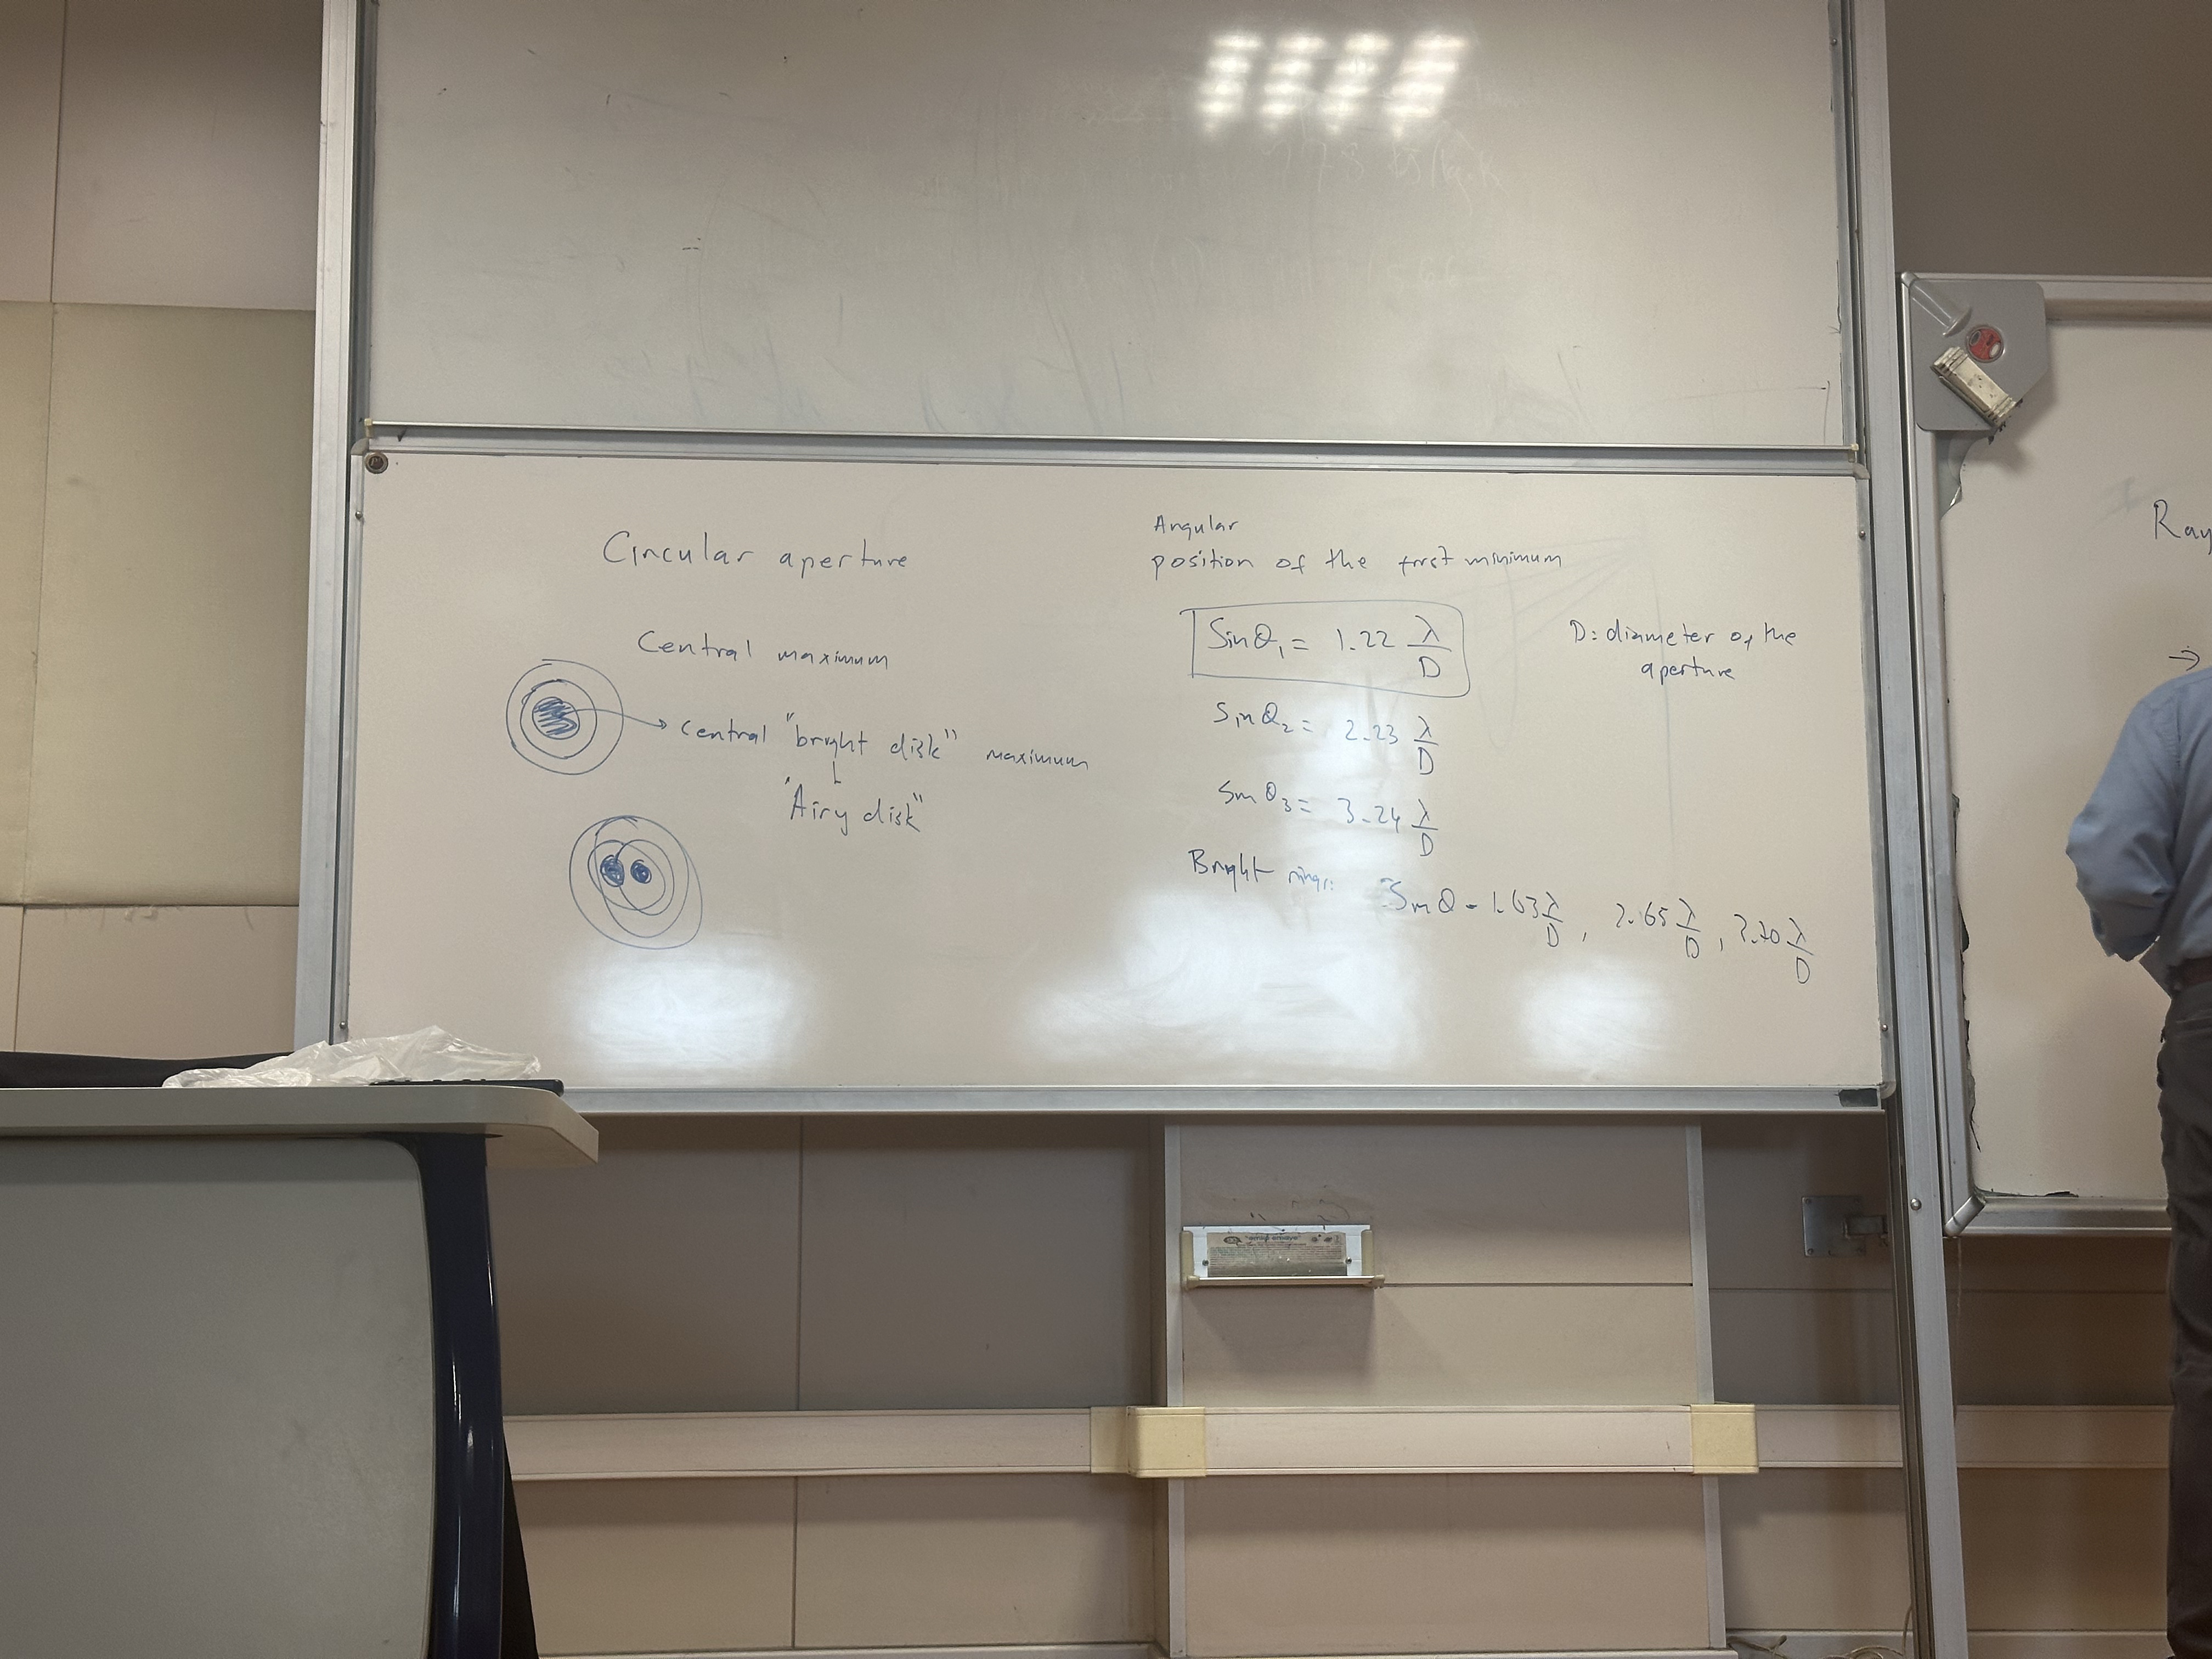 Circular aperture
Central maximum
Central "bright disk" maximum
"Airy disk"
Angular
position of the first minimum
Sinθ₁ = 1.22 λ/D
D: diameter of the
aperture
Sinθ₂ = 2.23 λ/D
Sinθ₃ = 3.24 λ/D
Bright rings:
Sinθ = 1.63 λ/D, 2.65 λ/D, 3.70 λ/D
Ray
→